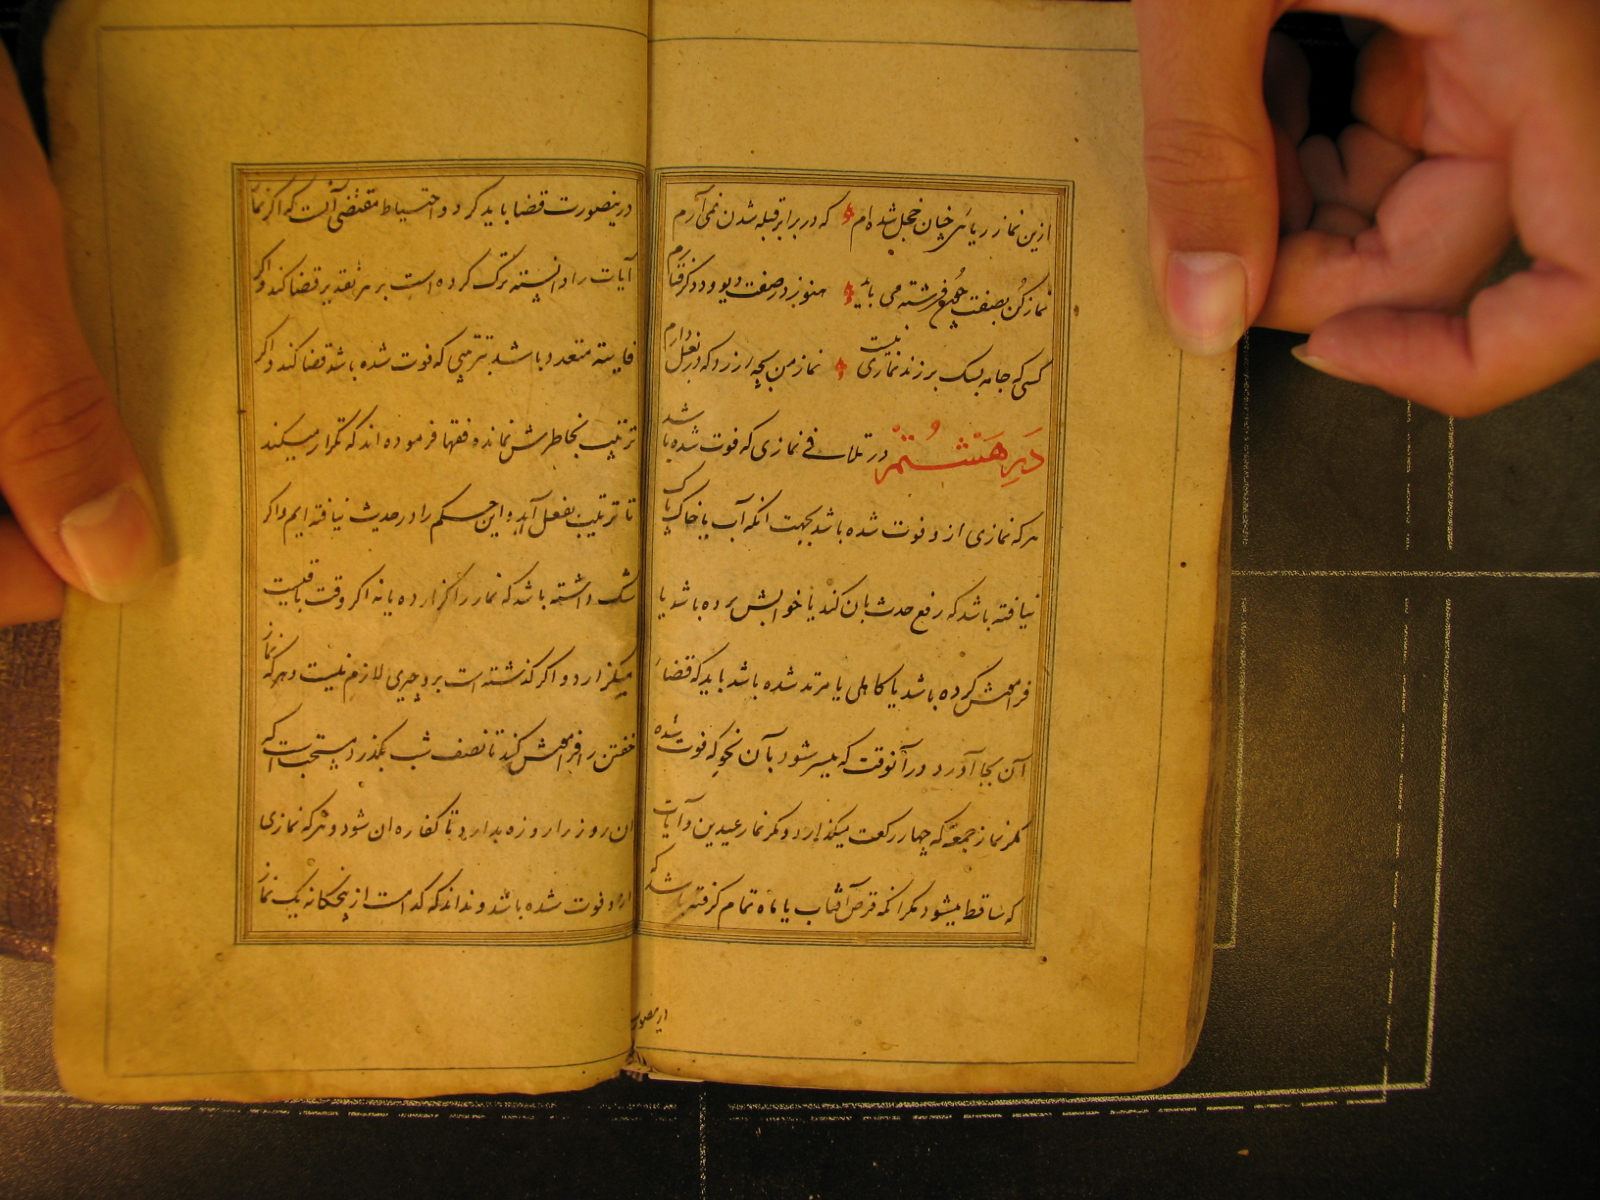 ازین نماز ریائی چنان خجل شده ام که در برابر قبله شدن نمی آرم
نماز کن بصفت چون فرشته می باید هنوز در صفت دیو و دد گرفتارم
کسی که جامه بسک برزند نمازی نیست نماز من بچه ارزد که در بغل دارم
در هشتم در تلافی نمازی که فوت شده باشد
هر که نمازی از و فوت شده باشد بجهت آنکه آب یا خاک پاک
نیافته باشد که رفع حدث بآن کند یا خوابش برده باشد یا
فراموش کرده باشد یا کاهلی یا مرتد شده باشد باید که قضاء
آن بجا آورد در آنوقت که میسر شود بآن نحو که فوت شده
مگر نماز جمعه که چهار رکعت میگذارد و مگر نماز عیدین و آیات
که ساقط میشود مگر آنکه قرص آفتاب یا ماه تمام گرفته باشد که
درینصورت
درینصورت قضا باید کرد و احتیاط مقتضی آنست که اگر نماز
آیات را دانسته ترک کرده است بر هر تقدیر قضا کند و اگر
فایته متعدد باشد بترتیبی که فوت شده باشد قضا کند و اگر
ترتیب بخاطرش نمانده فقها فرموده اند که تکرار میکند
تا ترتیب بفعل آید و این حکم را در حدیث نیافته ایم و اگر
شک داشته باشد که نماز را گزارده یا نه اگر وقت باقیست
میگزارد و اگر گذشته است برو چیزی لازم نیست و هر که نماز
خفتن را فراموش کند تا نصف شب بگذرد مستحب است که
آن روز را روزه بدارد تا کفاره آن شود و هر که نمازی
ازو فوت شده باشد و نداند که کدامست از پنجگانه یک نماز